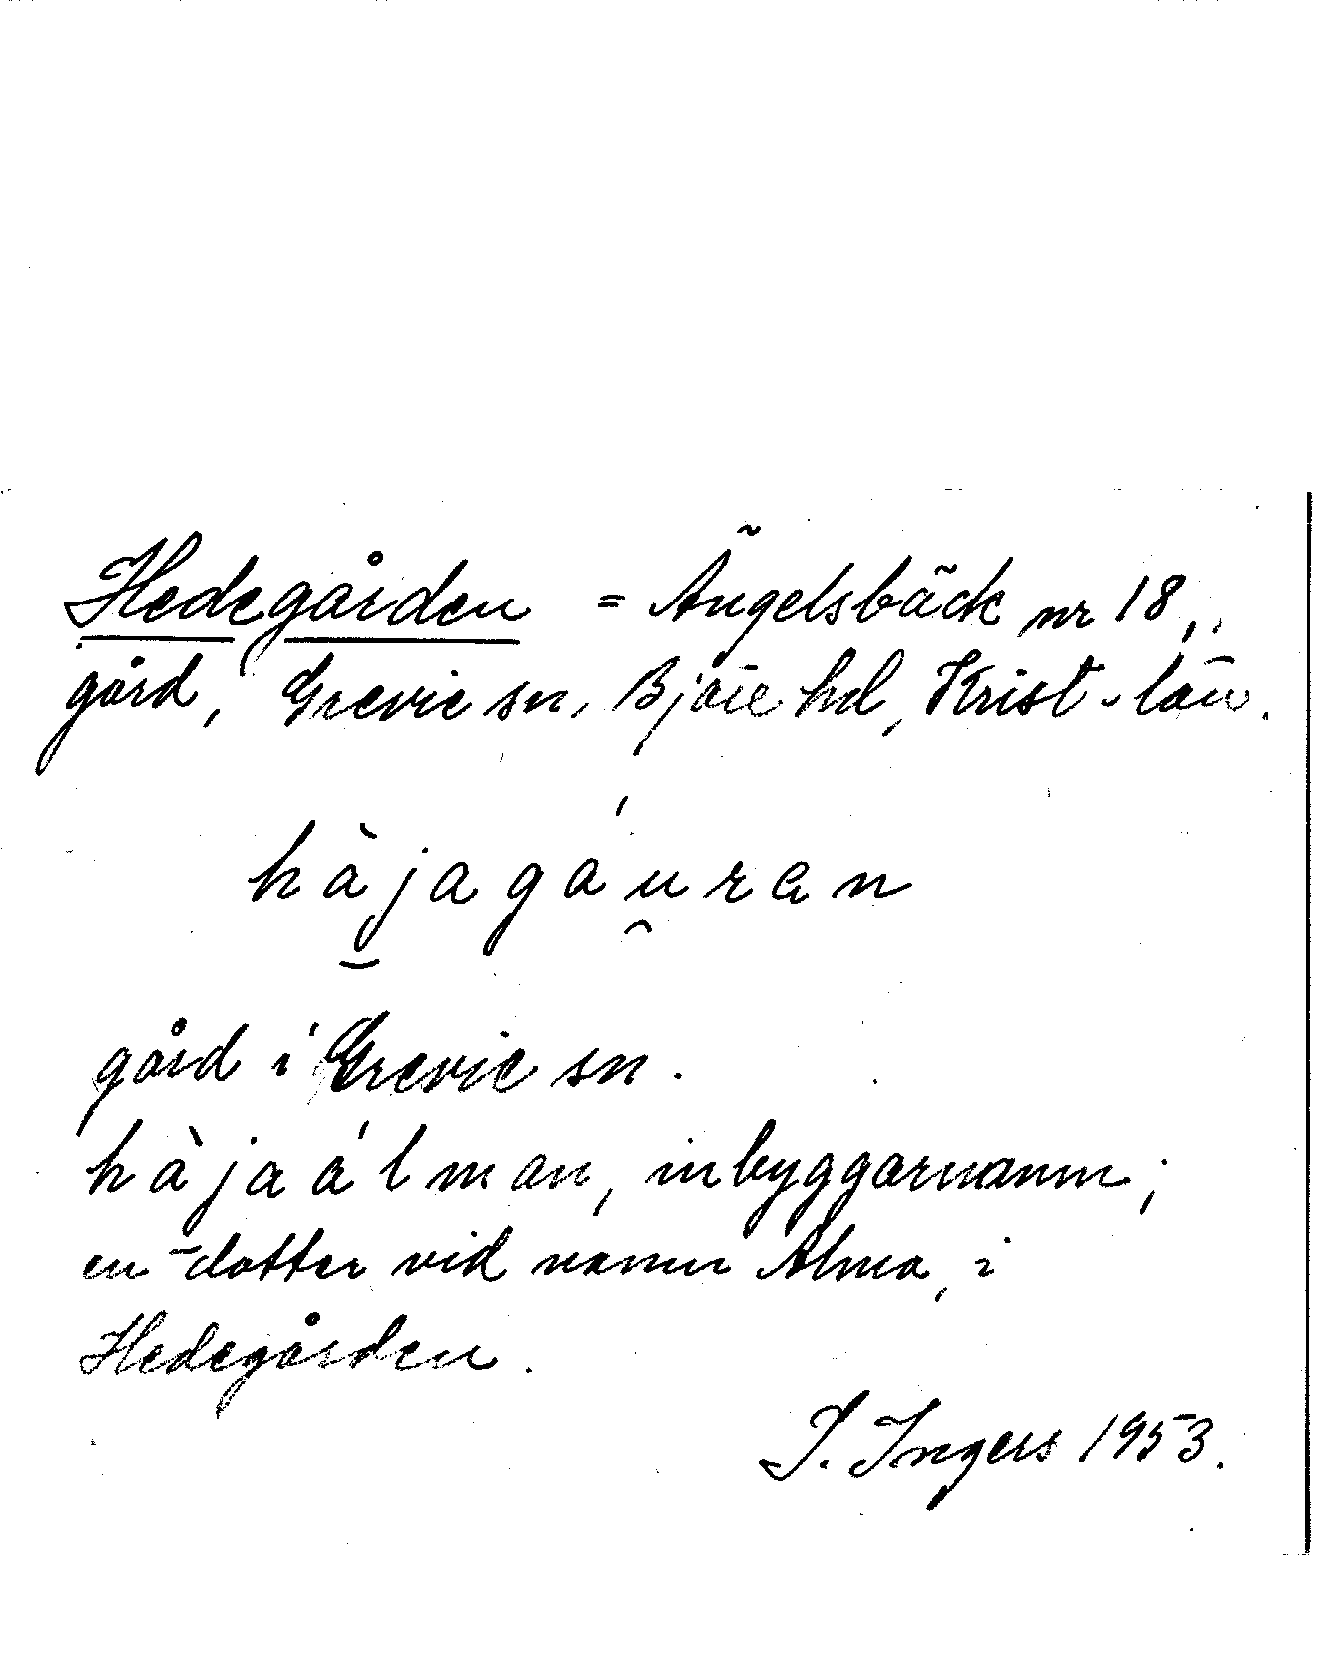 Hedegården = Ängelsbäck nr 18,
gård, Grevie sn, Bjäre hd, Krist. län.
hàjagáuran
gård i Grevie sn.
hàjaálman, inbyggarnamn;
en dotter vid namn Alma, i
Hedegården.
I. Ingers 1953.